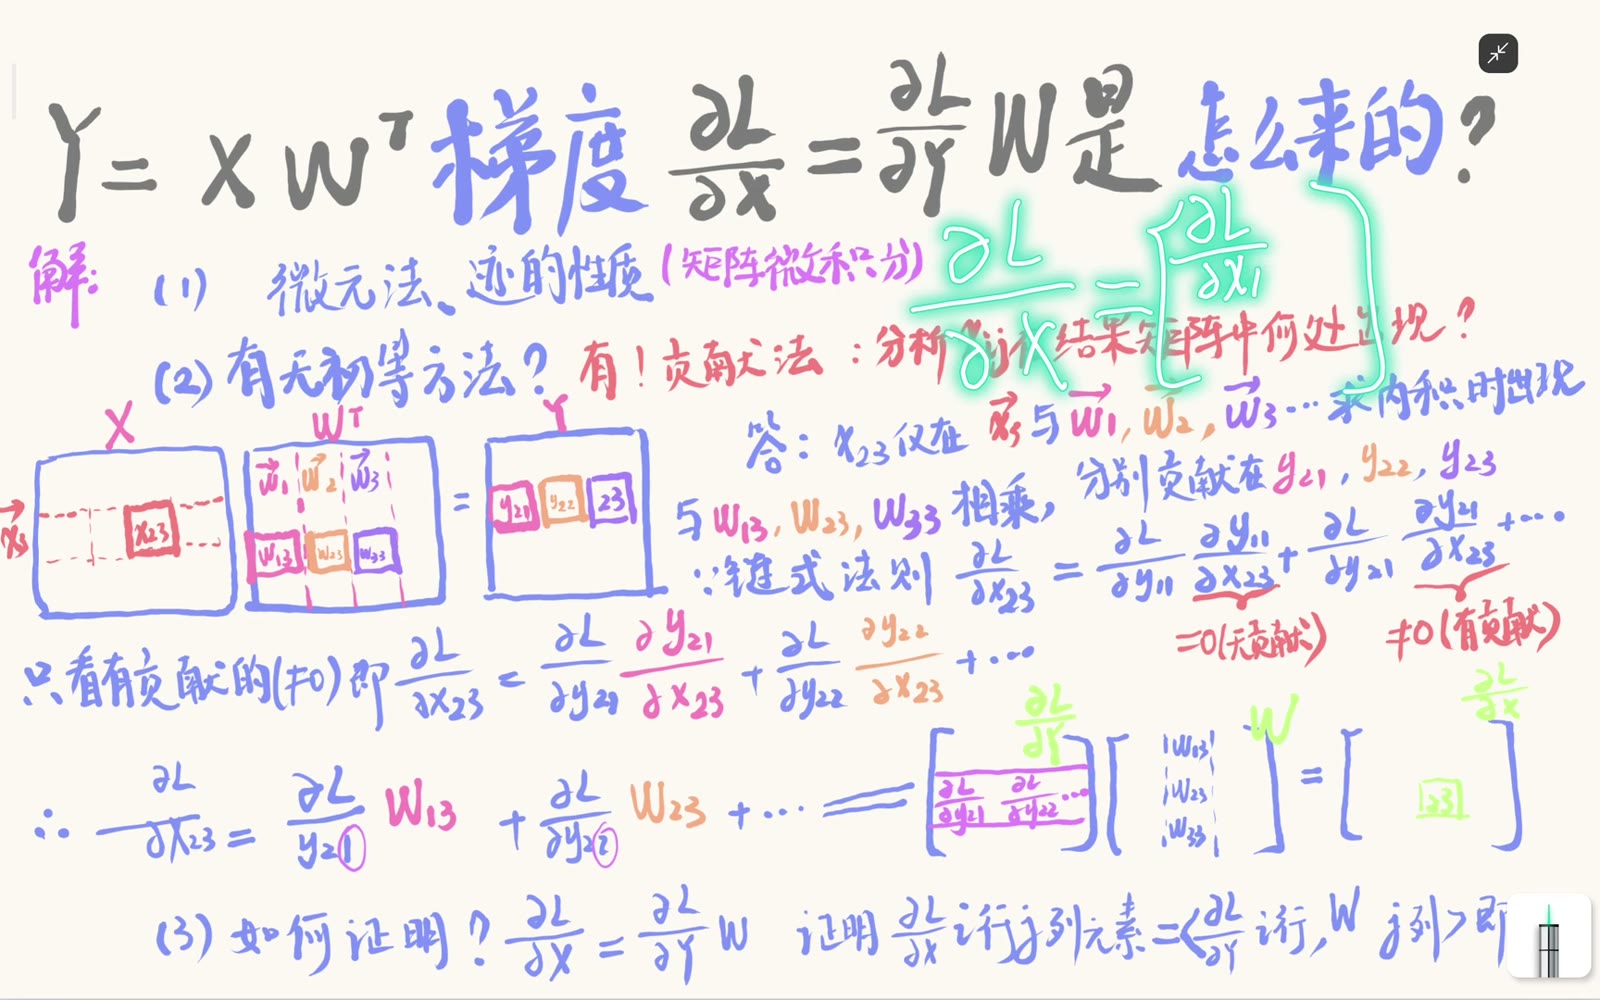 Y = XWᵀ 梯度 ∂L/∂X = ∂L/∂Y W 是怎么来的?
解: (1) 微元法、迹的性质 (矩阵微积分)
∂L/∂X = [∂L/∂x₁ ]
(2) 有无初等方法? 有! 贡献法: 分析 xij在结果矩阵中何处出现?
X Wᵀ Y
w⃗₁ w⃗₂ w⃗₃
x₂₃ w₁₃ w₂₃ w₃₃ = y₂₁ y₂₂ 23
答: x₂₃仅在 与 w⃗₁, w⃗₂, w⃗₃ … 求内积时出现
与 w₁₃, w₂₃, w₃₃ 相乘, 分别贡献在 y₂₁, y₂₂, y₂₃
∵链式法则 ∂L/∂x₂₃ = ∂L/∂y₁₁ ∂y₁₁/∂x₂₃ + ∂L/∂y₂₁ ∂y₂₁/∂x₂₃ + …
=0 (无贡献) ≠0 (有贡献)
只看有贡献的(≠0) 即 ∂L/∂x₂₃ = ∂L/∂y₂₁ ∂y₂₁/∂x₂₃ + ∂L/∂y₂₂ ∂y₂₂/∂x₂₃ + …
∴ ∂L/∂x₂₃ = ∂L/y₂₁ w₁₃ + ∂L/∂y₂₂ w₂₃ + … =
∂L/∂Y W ∂L/∂X
[∂L/∂y₂₁ ∂L/∂y₂₂ …] [w₁₃ w₂₃ w₃₃] = [23]
(3) 如何证明? ∂L/∂X = ∂L/∂Y W 证明 ∂L/∂X i行j列元素 = <∂L/∂Y i行, W j列> 即